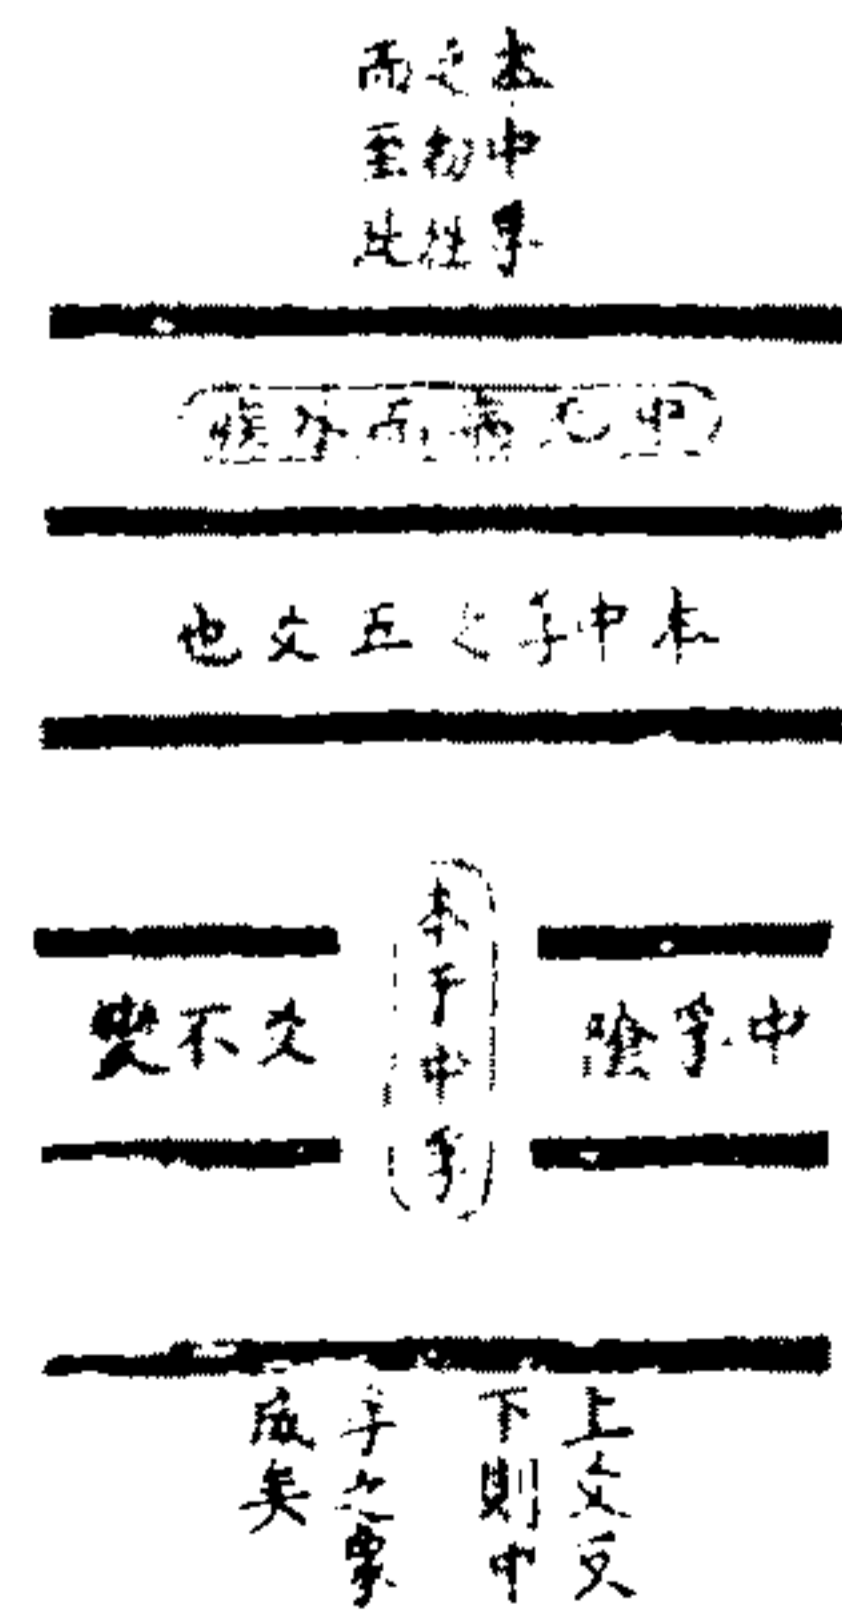 本中孚
之物性
而至此
中 而外
本中孚之五爻也
中孚陰
本于中孚
爻不變
上爻反
下則中
孚之象
成矣